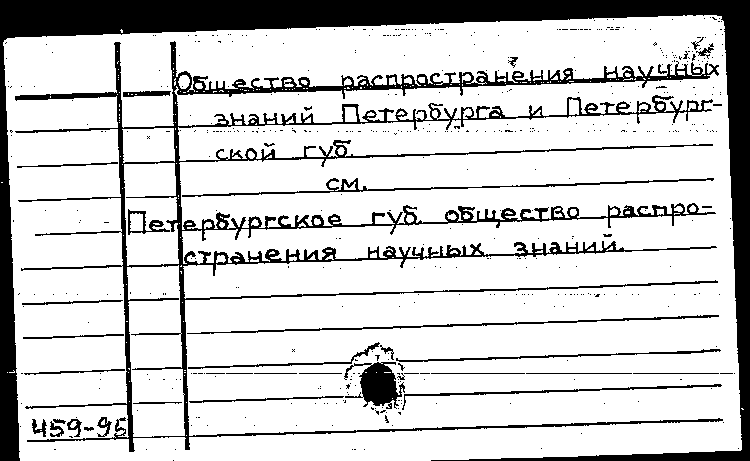 Общество распространения научных
знаний Петербурга и Петербург-
ской губ.
см.
Петербургское губ. общество распро-
странения научных знаний.
459-95